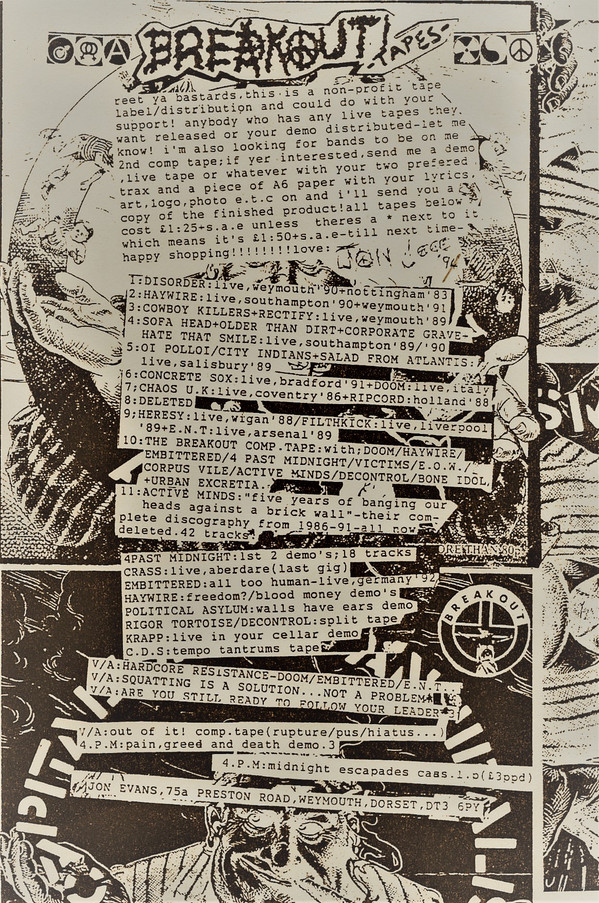 BREAKOUT! TAPES-
reet ya bastards,this is a non-profit tape
label/distribution and could do with your
support! anybody who has any live tapes they.
want released or your demo distributed-let me
know! i'm also looking for bands to be on me
2nd comp tape;if yer interested,send me a demo
,live tape or whatever with your two prefered
trax and a piece of A6 paper with your lyrics,
art,logo,photo e.t.c on and i'll send you a
copy of the finished product!all tapes below
cost £1:25+s.a.e unless theres a * next to it
which means it's £1:50+s.a.e-till next time-
happy shopping!!!!!!!!love:
1:DISORDER:live,weymouth'90+nottingham'83
2:HAYWIRE:live,southampton'90+weymouth'91
3:COWBOY KILLERS+RECTIFY:live,weymouth'89
4:SOFA HEAD+OLDER THAN DIRT+CORPORATE GRAVE-
HATE THAT SMILE:live,southampton'89/'90
5:OI POLLOI/CITY INDIANS+SALAD FROM ATLANTIS:
live,salisbury'89
6:CONCRETE SOX:live,bradford'91+DOOM:live,italy
7:CHAOS U.K:live,coventry'86+RIPCORD:holland'88
8:DELETED
9:HERESY:live,wigan'88/FILTHKICK:live,liverpool
'89+E.N.T:live,arsenal'89
10:THE BREAKOUT COMP.TAPE:with;DOOM/HAYWIRE/
EMBITTERED/4 PAST MIDNIGHT/VICTIMS/E.O.W./
CORPUS VILE/ACTIVE MINDS/DECONTROL/BONE IDOL,
+URBAN EXCRETIA.
11:ACTIVE MINDS:"five years of banging our
heads against a brick wall"-their com-
plete discography from 1986-91-all now
deleted.42 tracks
ORE THAN 80
4PAST MIDNIGHT:1st 2 demo's;18 tracks
CRASS:live,aberdare(last gig)
EMBITTERED:all too human-live,germany'92
HAYWIRE:freedom?/blood money demo's
POLITICAL ASYLUM:walls have ears demo
RIGOR TORTOISE/DECONTROL:split tape
KRAPP:live in your cellar demo
C.D.S:tempo tantrums tape
BREAKOUT
V/A:HARDCORE RESISTANCE-DOOM/EMBITTERED/E.N.T..
V/A:SQUATTING IS A SOLUTION...NOT A PROBLEM*
V/A:ARE YOU STILL READY TO FOLLOW YOUR LEADER*
V/A:out of it! comp.tape(rupture/pus/hiatus...)
4.P.M:pain,greed and death demo.3
4.P.M:midnight escapades cass.l.p(£3ppd)
JON EVANS,75a PRESTON ROAD,WEYMOUTH,DORSET,DT3 6PY